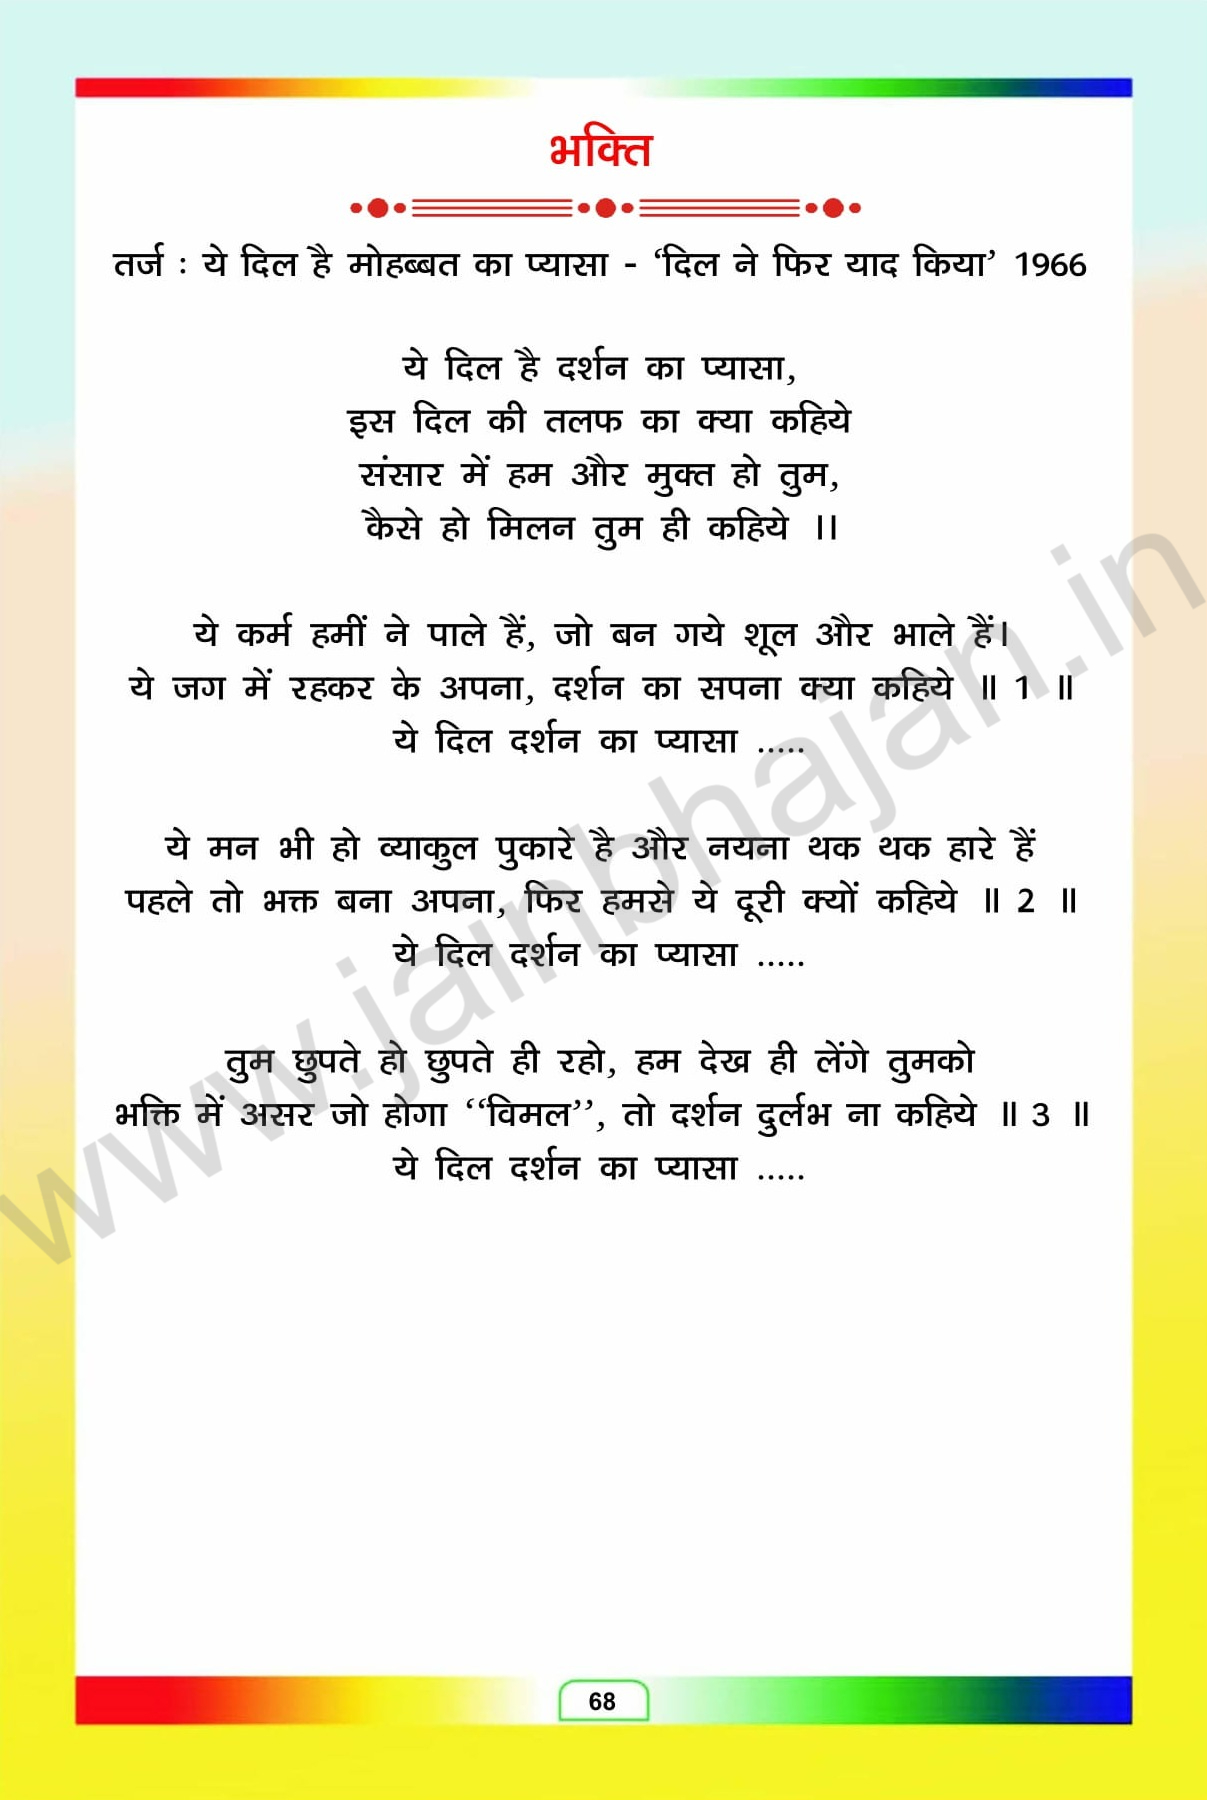 भक्ति
तर्ज : ये दिल है मोहब्बत का प्यासा - ‘दिल ने फिर याद किया’ 1966
ये दिल है दर्शन का प्यासा,
इस दिल की तलफ का क्या कहिये
संसार में हम और मुक्त हो तुम,
कैसे हो मिलन तुम ही कहिये ।।
ये कर्म हमीं ने पाले हैं, जो बन गये शूल और भाले हैं।
ये जग में रहकर के अपना, दर्शन का सपना क्या कहिये ॥ 1 ॥
ये दिल दर्शन का प्यासा .....
ये मन भी हो व्याकुल पुकारे है और नयना थक थक हारे हैं
पहले तो भक्त बना अपना, फिर हमसे ये दूरी क्यों कहिये ॥ 2 ॥
ये दिल दर्शन का प्यासा .....
तुम छुपते हो छुपते ही रहो, हम देख ही लेंगे तुमको
भक्ति में असर जो होगा ‘‘विमल’’, तो दर्शन दुर्लभ ना कहिये ॥ 3 ॥
ये दिल दर्शन का प्यासा .....
www.jainbhajan.in
68